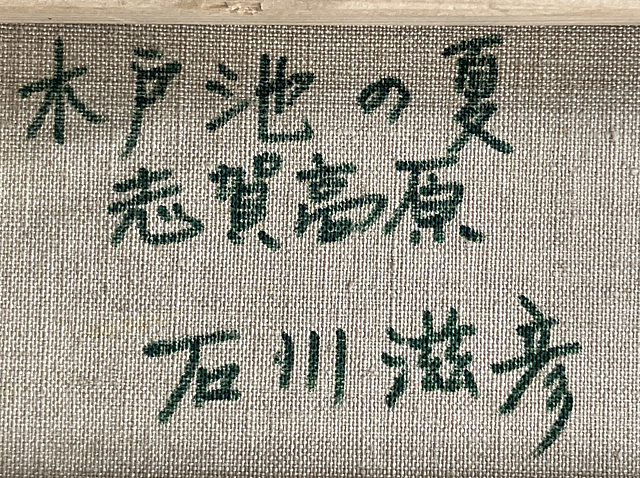 木戸池の夏
志賀高原
石川滋彦